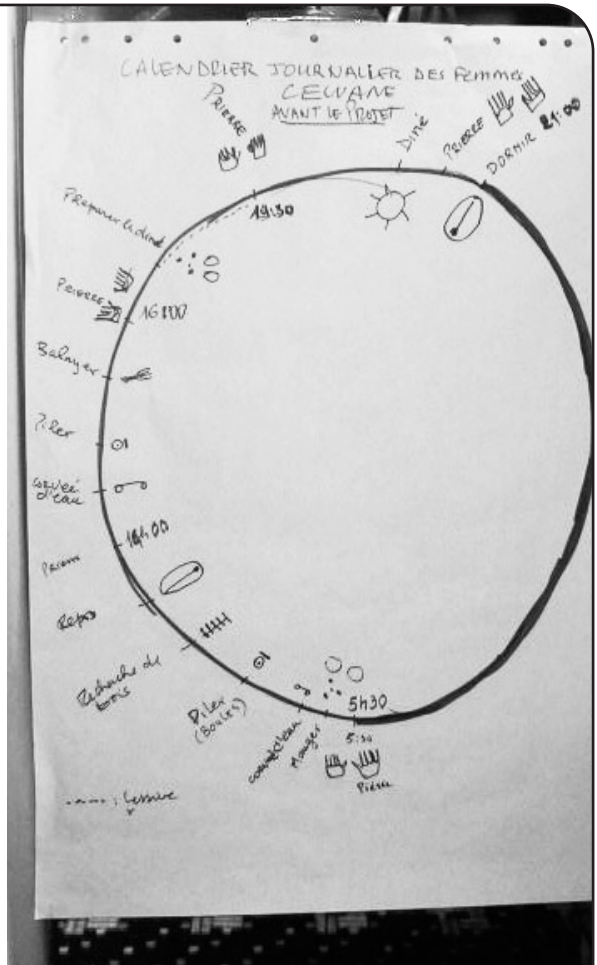 CALENDRIER JOURNALIER DES Femmes
CEWANE
AVANT LE PROJET
PRIERRE
Diné
PRIERRE
DORMIR 21:00
19:30
Preparer le diné
PRIERRE
16H00
Balayer
Piler
corvée d'eau
14h00
Repos
Recherche de bois
Piler (Boules)
corvée d'eau
Manger
5h30
5:30
: Lessive